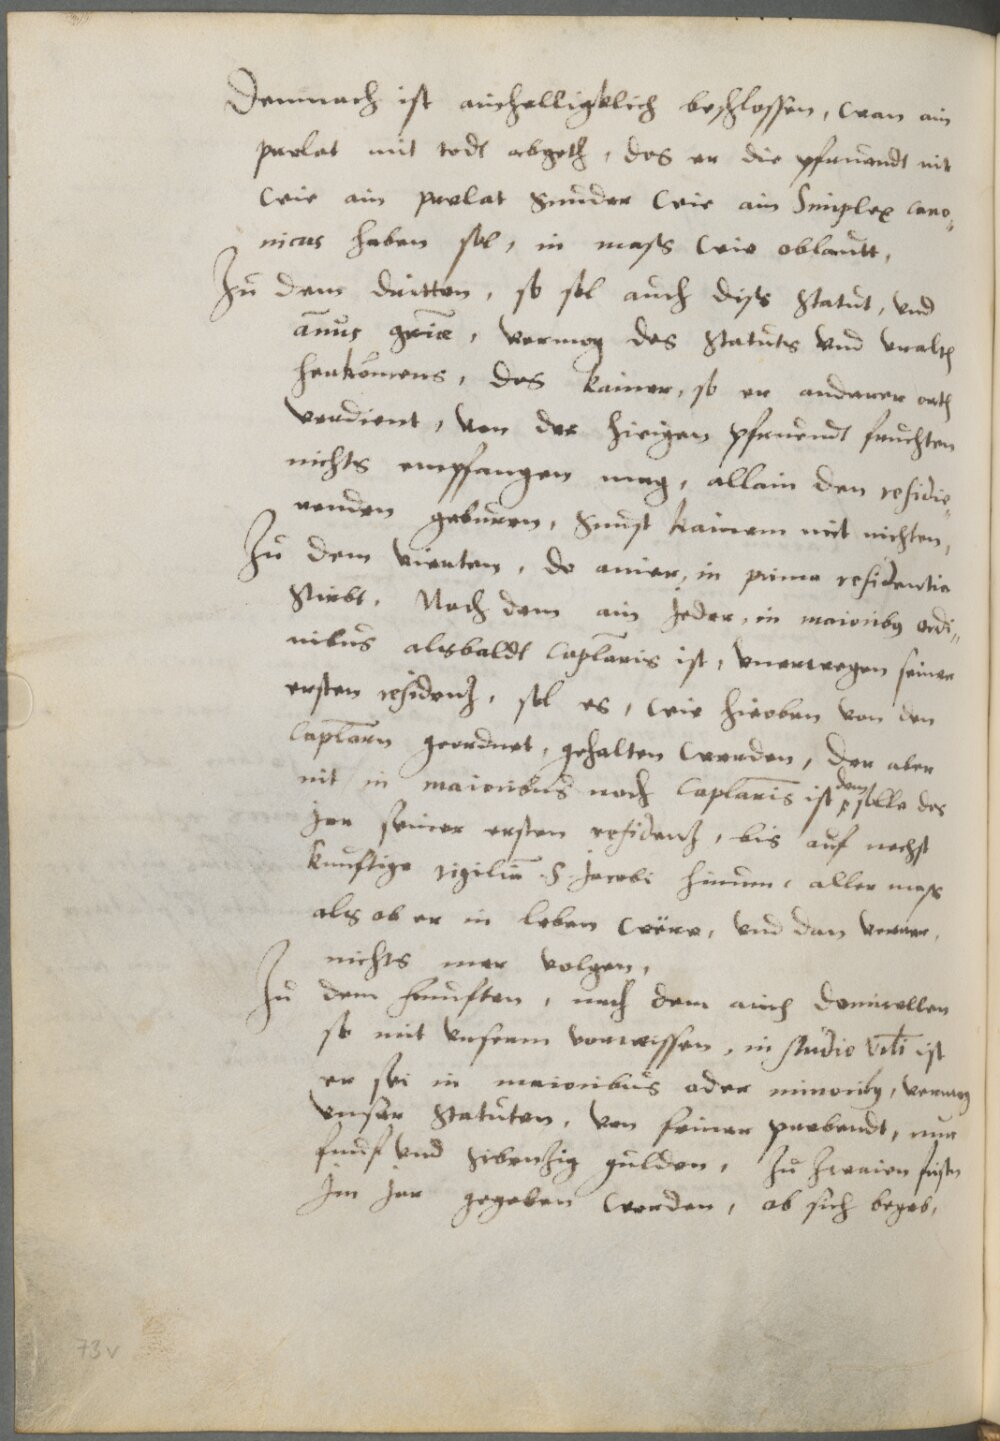 Demnach ist ainhelligklich beschlossen, wan ain
prelat mit todt abgeth, das er die pfruendt nit
wie ain prelat sunder wie ain Simplex cano„
nicus haben sol, in mass wie oblautt,
Zu dem dritten, so sol auch diss statut, und
an̄us gr̄ie, vermog des statuts und uralth
herkomens, das kainer, so er anderer orth
verdient, von der hieigen pfruendt fruchten
nichts empfangen mag, allain den residie„
renden geburen, sunst kainem mit nichten,
Zu dem vierten, do ainer, in prima residentia
stirbt. Nach dem ain jeder, in maioribus ordi„
nibus alsbaldt Caplaris ist, unerwegen seiner
ersten residentz, sol es, wie hieoben von den
Caplarn geordnet, gehalten werden, der aber
nit in maioribus noch Caplaris ist dem solle das
jar seiner ersten residentz, bis auf nechst
kunftige vigiliā S. Jacobi hinum, aller mass
als ob er in leben were, und dan verrer,
nichts mer volgen,
Zu dem funften, nach dem auch domicellen
so mit unserm vorwissen, in studio ist
er sei in maioribus oder minoribus, vermog
unser statuten, von seiner prebendt, nur
funf und sibentzig gulden, zu zwaien fristen
Im jar gegeben werden, ob sich begeb,
73v